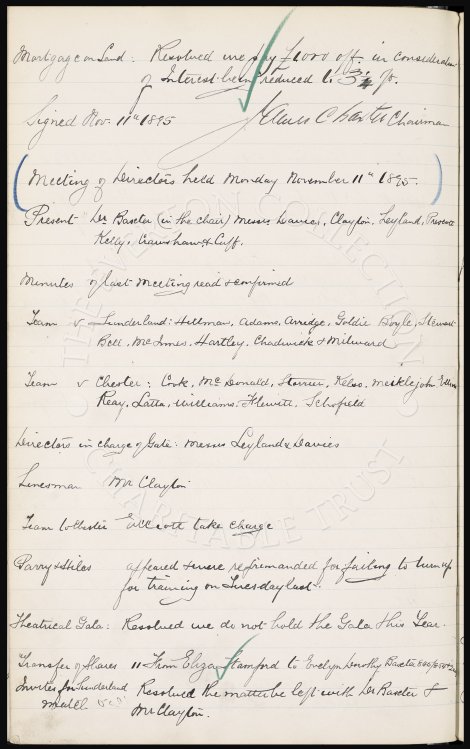 Mortgage on Land. Resolved we pay £1000 off in consideration
of Interest being reduced to 3¾ %.
Signed Nov. 11th 1895 James C Baxter Chairman
Meeting of Directors held Monday November 11th 1895.
Present Dr. Baxter (in the chair) Messrs Davies, Clayton, Leyland, Prescott
Kelly, Crawshaw & Cuff.
Minutes of last Meeting read & confirmed
Team v Sunderland: Hillman, Adams, Arridge, Goldie Boyle, Stewart
Bell, McInnes, Hartley, Chadwick & Milward
Team v Chester: Cook, McDonald, Storrier, Kelso, Meiklejohn
Reay, Latta, Williams, Flewitt, Schofield
Directors in charge of Gate: Messrs Leyland & Davies
Linesman Mr Clayton
Team to Chester take charge
Parry & Hiles appeared & were reprimanded for failing to turn up
for training on Tuesday last.
Theatrical Gala: Resolved we do not hold the Gala this Year.
Transfer of Shares 11 From Eliza Stamford to Evelyn Dorothy Baxter
Invites for Sunderland Resolved the matter be left with Dr Baxter &
match Mr Clayton.
THE EVERTON COLLECTION
CHARITABLE TRUST